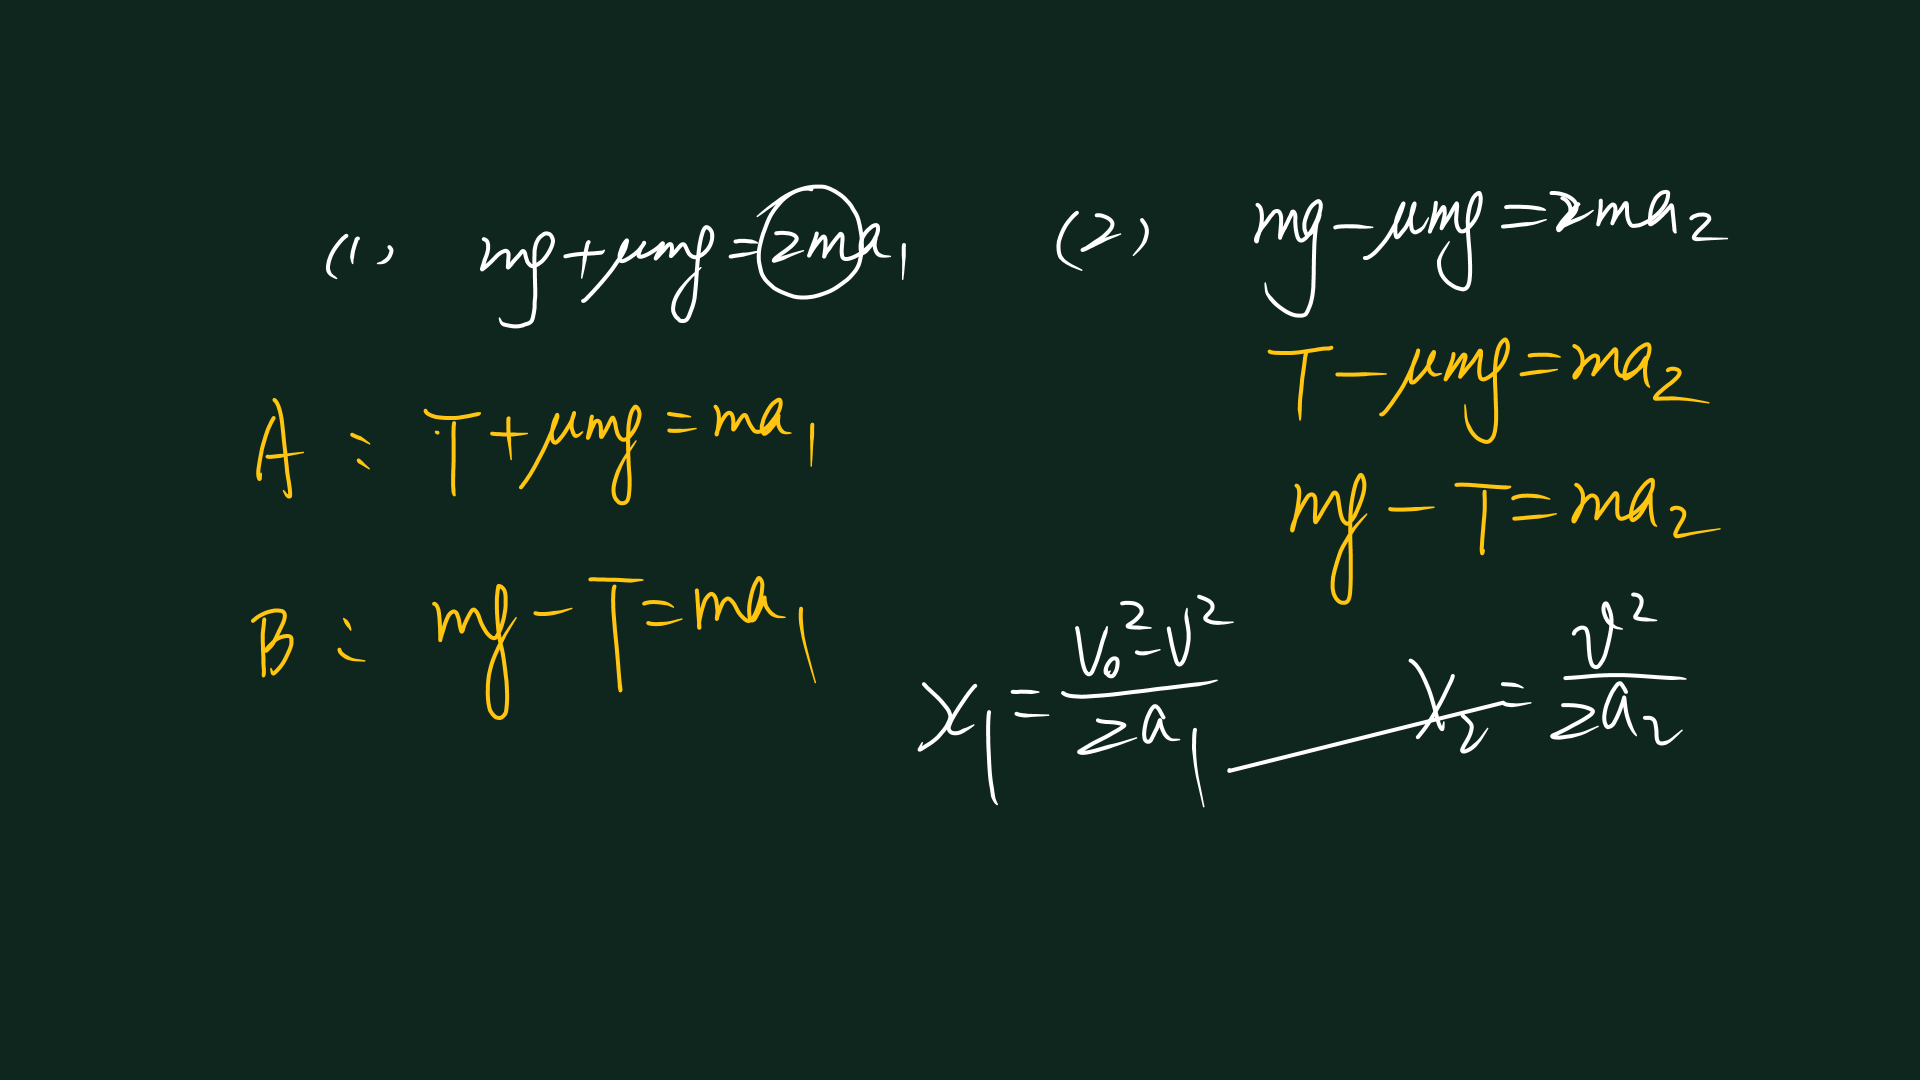 (1) mg+μmg=2ma₁
A: T+μmg=ma₁
B: mg-T=ma₁
(2) mg-μmg=2ma₂
T-μmg=ma₂
mg-T=ma₂
x₁=(v₀²-v²)/(2a₁)
x₂=v²/(2a₂)